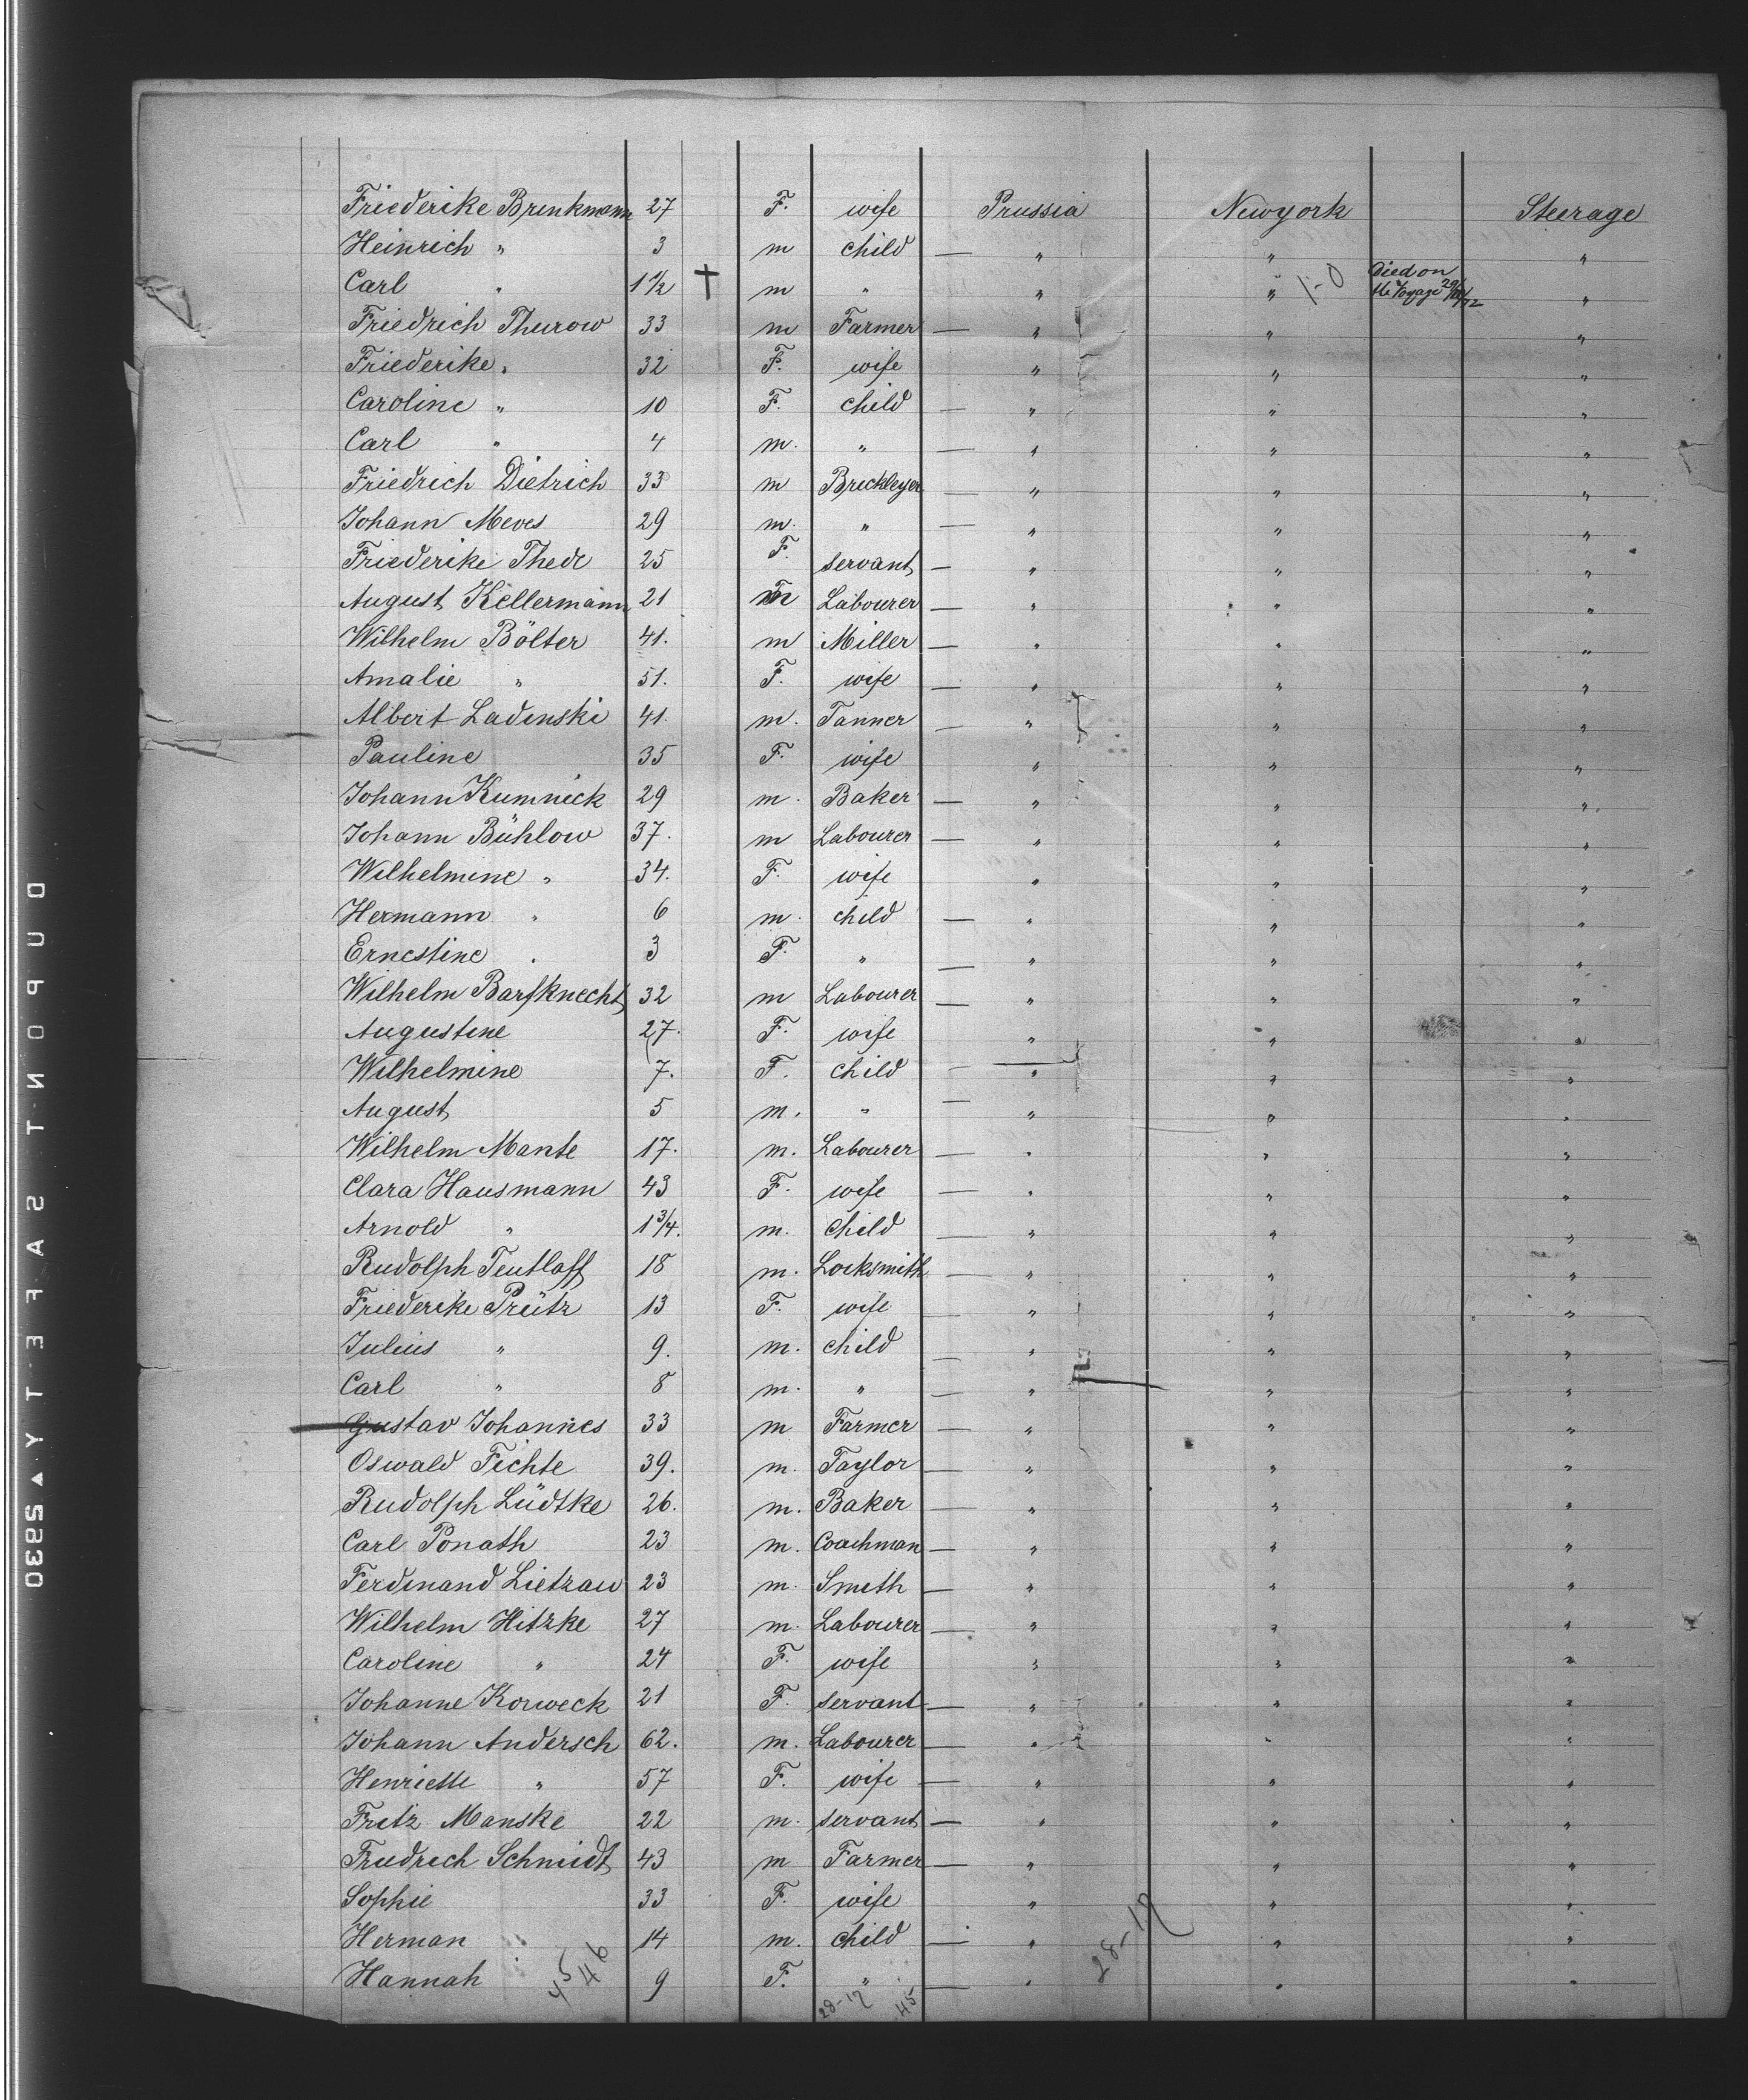 Friederike Brinkmann 27 F. wife Prussia Newyork Steerage
Heinrich " 3 m child — " " "
Carl " 1 1/2 † m " " " 1-0 Died on the Voyage "
Friedrich Thurow 33 m Farmer — " " "
Friederike " 32 F. wife " " "
Caroline " 10 F. child — " " "
Carl " 4 m. " — " " "
Friedrich Dietrich 33 m Brickleyer — " " "
Johann Meves 29 m. " — " " "
Friederike Thede 25 F. servant — " " "
August Kellermann 21 m Labourer — " " "
Wilhelm Bölter 41. m Miller — " " "
Amalie " 51. F. wife — " " "
Albert Ladinski 41. m. Tanner — " " "
Pauline 35 F. wife " " "
Johann Kumnick 29 m. Baker — " " "
Johann Bühlow 37. m Labourer — " " "
Wilhelmine " 34. F. wife " " "
Hermann " 6 m. child — " " "
Ernestine " 3 F. " — " " "
Wilhelm Barfknecht 32 m Labourer — " " "
Augustine 27. F. wife " " "
Wilhelmine 7. F. child — " " "
August 5 m. " — " " "
Wilhelm Mante 17. m. Labourer — " " "
Clara Hausmann 43 F. wife — " " "
Arnold " 1 3/4. m. child — " " "
Rudolph Teutlaff 18 m. Locksmith — " " "
Friederike Prütz 13 F. wife " " "
Julius " 9. m. child — " " "
Carl " 8 m. " — " " "
Gustav Johannes 33 m Farmer — " " "
Oswald Fichte 39. m. Taylor — " " "
Rudolph Lüdtke 26. m. Baker — " " "
Carl Ponath 23 m. Coachman — " " "
Ferdinand Lietzau 23 m. Smith — " " "
Wilhelm Hitzke 27 m. Labourer — " " "
Caroline " 24 F. wife " " "
Johanne Korweck 21 F. servant — " " "
Johann Andersch 62. m. Labourer — " " "
Henriette " 57 F. wife — " " "
Fritz Manske 22 m. servant — " " "
Friedrich Schmidt 43 m Farmer — " " "
Sophie 33 F. wife " " "
Herman 14 m. child — " " "
Hannah 9 F. " — " " "
45 46 28-17 45 28-17
DUPONT SAFETY ▲ S930